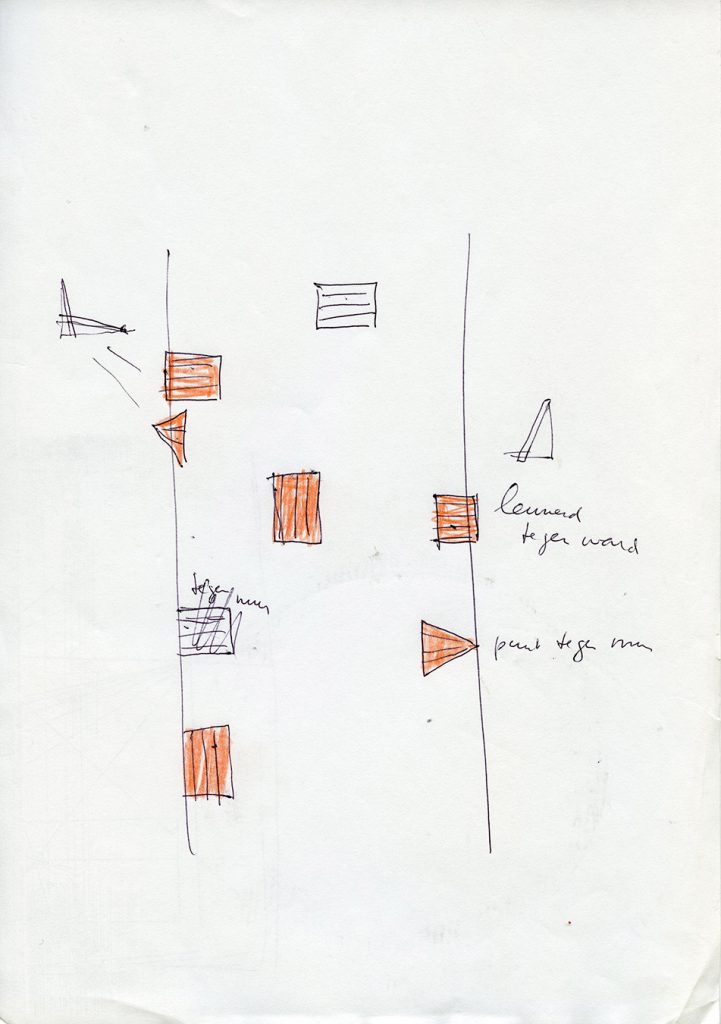 leunend
tegen wand
tegen muur
punt tegen muur